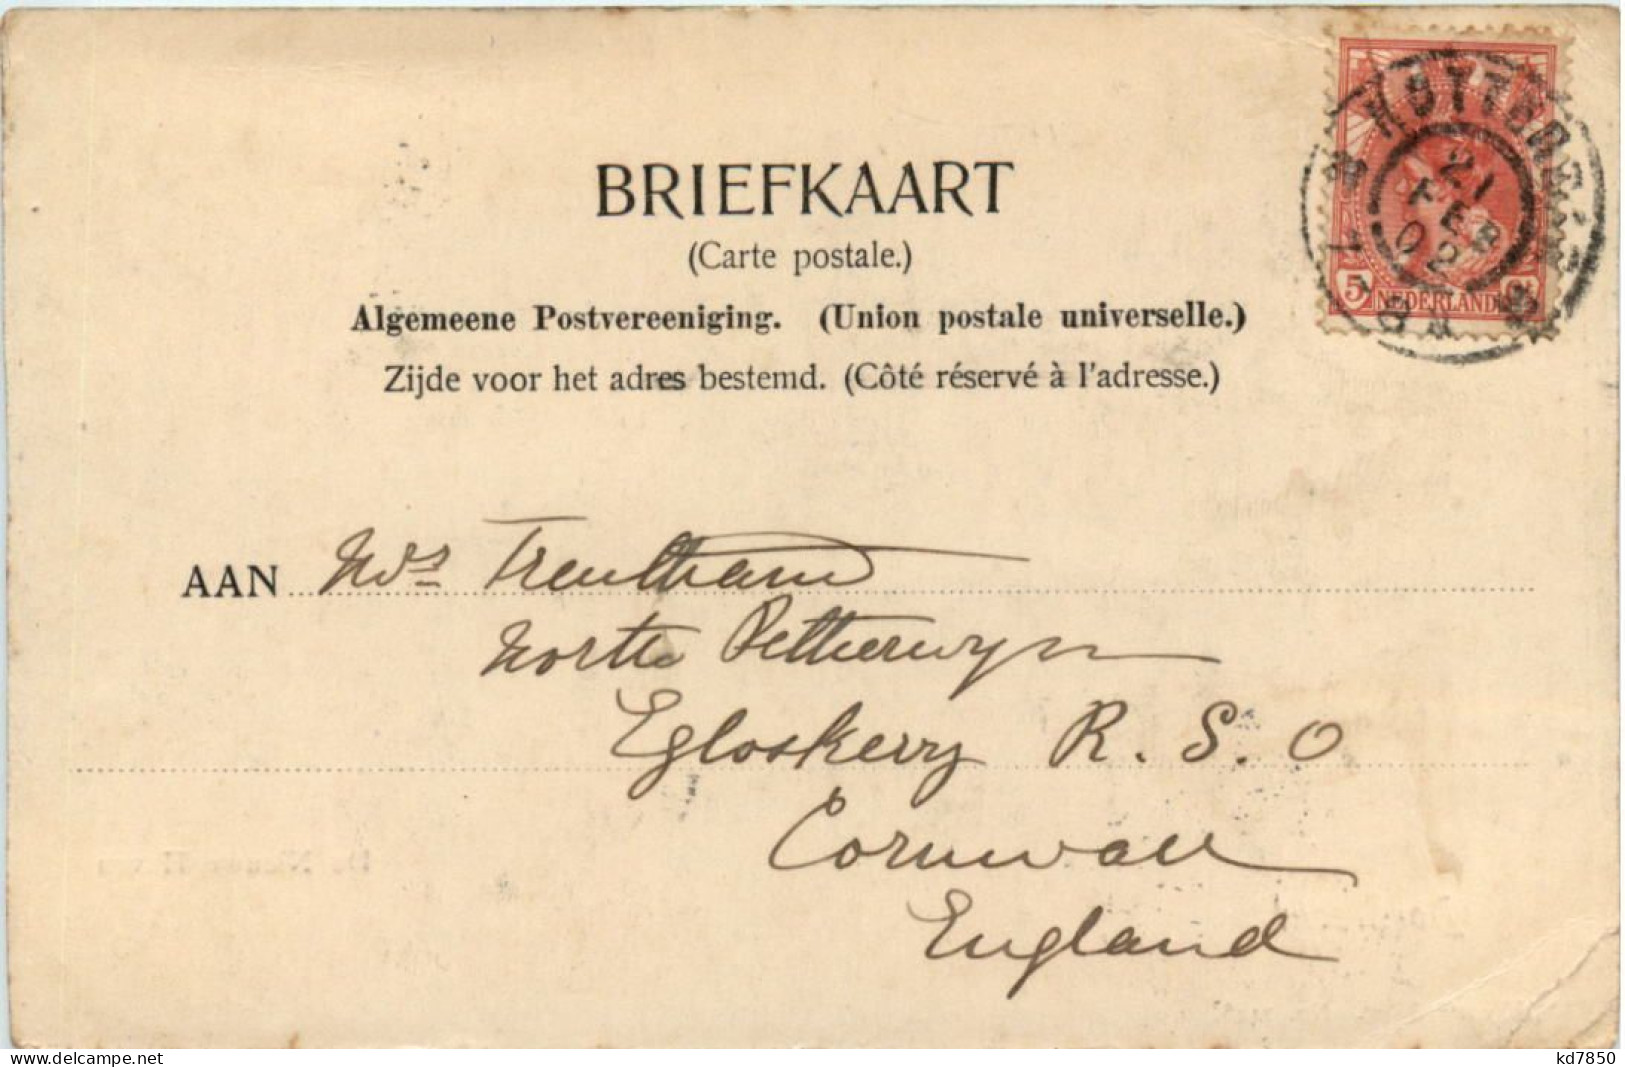 BRIEFKAART
(Carte postale.)
Algemeene Postvereeniging. (Union postale universelle.)
Zijde voor het adres bestemd. (Côté réservé à l'adresse.)
21
FEB
02
5 NEDERLAND
AAN Mrs Trentham
North Petherwyn
Egloskerry R. S. O
Cornwall
England
www.delcampe.net
kd7850